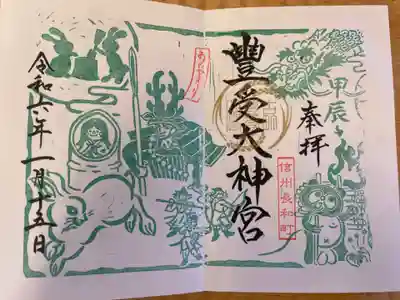 甲辰
奉拝
豐受大神宮
信州長和町
令和六年一月十五日